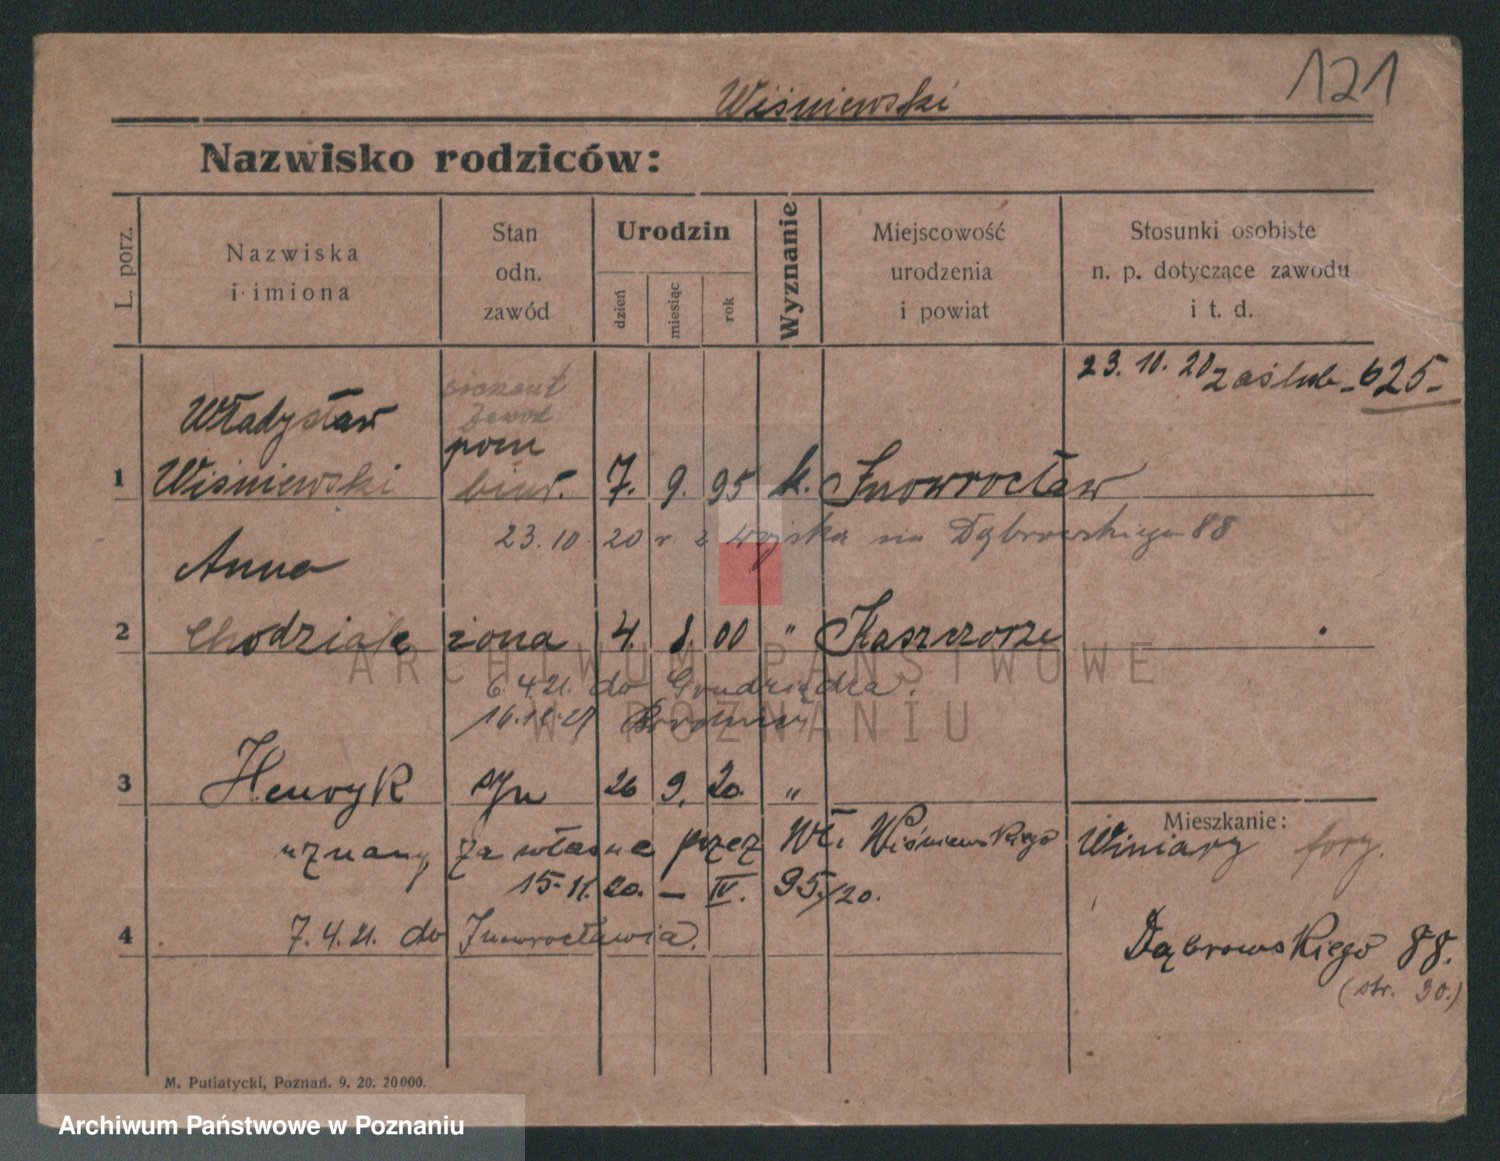 121
Wiśniewski
Nazwisko rodziców:
L. porz.
Nazwiska
i imiona
Stan
odn.
zawód
Urodzin
dzień
miesiąc
rok
Wyznanie
Miejscowość
urodzenia
i powiat
Stosunki osobiste
n. p. dotyczące zawodu
i t. d.
23. 10. 20 zaślub - 625 -
Władysław pom
1 Wiśniewski biur. 7. 9. 95 k. Inowrocław
23. 10. 20 r. z wojska na Dąbrowskiego 88
Anna
2 żona 4. 8. 00 " Kaszczorze
6.4.21. do Grudziądza.
3 Henryk syn 26 9. 20. "
uznany za własne przez Wł. Wiśniewskiego
15. 11. 20. — IV. 95/20.
4 7. 4. 21. do Inowrocławia.
Mieszkanie:
Winiary
Dąbrowskiego 88.
(str. 30.)
M. Putiatycki, Poznań. 9. 20. 20 000.
ARCHIWUM PAŃSTWOWE
W POZNANIU
Archiwum Państwowe w Poznaniu